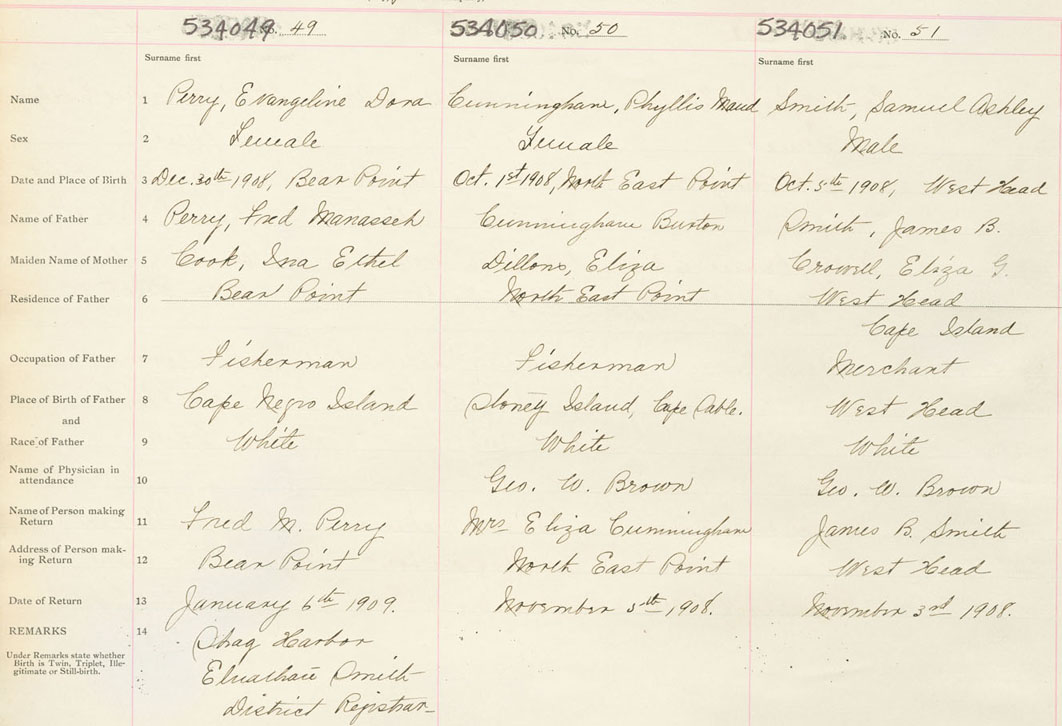 534049 No. 49 534050 No. 50 534051 No. 51
Surname first Surname first Surname first
Name 1 Perry, Evangeline Dora Cunningham, Phyllis Maud Smith, Samuel Ashley
Sex 2 Female Female Male
Date and Place of Birth 3 Dec. 30th 1908, Bear Point Oct. 1st 1908, North East Point Oct. 5th 1908, West Head
Name of Father 4 Perry, Fred Manasseh Cunningham Burton Smith, James B.
Maiden Name of Mother 5 Cook, Ina Ethel Dillons, Eliza Crowell, Eliza G.
Residence of Father 6 Bear Point North East Point West Head
Cape Island
Occupation of Father 7 Fisherman Fisherman Merchant
Place of Birth of Father 8 Cape Negro Island Stoney Island, Cape Sable. West Head
and
Race of Father 9 White White White
Name of Physician in
attendance 10 Geo. W. Brown Geo. W. Brown
Name of Person making
Return 11 Fred M. Perry Mrs Eliza Cunningham James B. Smith
Address of Person mak-
ing Return 12 Bear Point North East Point West Head
Date of Return 13 January 6th 1909. November 5th 1908. November 3rd 1908.
REMARKS 14 Shag Harbor
Under Remarks state whether
Birth is Twin, Triplet, Ille-
gitimate or Still-birth.
Elnathan Smith
District Registrar